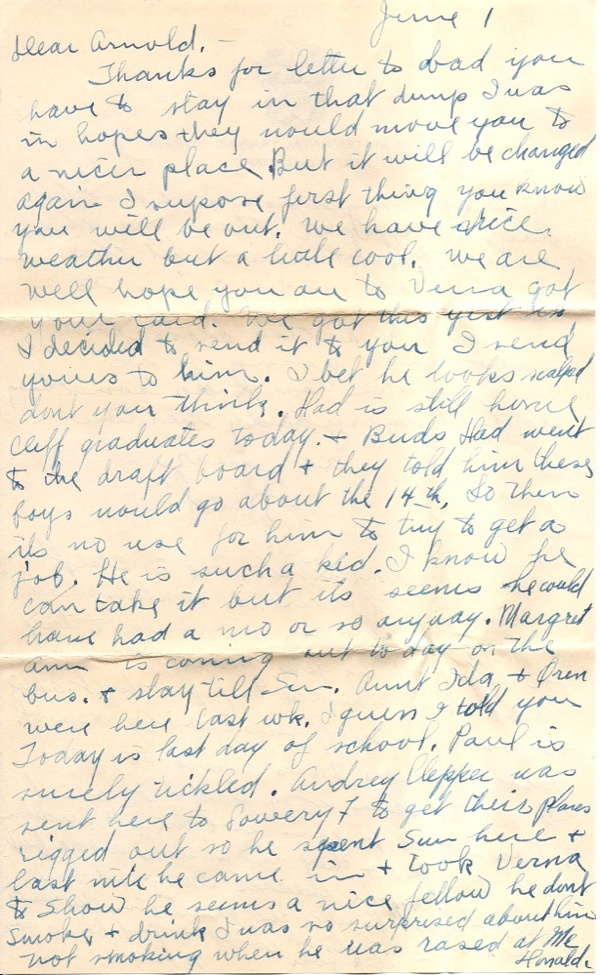 June 1
Dear Arnold. -
Thanks for letter to bad you
have to stay in that dump I was
in hopes they would move you to
a nicer place. But it will be changed
again I supose first thing you know
you will be out. We have nice
weather but a little cool. We are
well hope you are to Verna got
your card. We got this yest so
I decided to send it to you I send
yours to him. I bet he looks scalped
dont you think. Had is still home
Cliff graduates today. + Buds Had went
to the draft board + they told him these
boys would go about the 14th. So then
its no use for him to try to get a
job. He is such a kid. I know he
can take it but its seems he could
have had a mo or so anyway. Margret
Ann is coming out to day on the
bus. + stay till Sun. Aunt Ida + Oren
were here last wk. I guess I told you
Today is last day of school. Paul is
surely tickled. Audrey Clepper was
sent here to to get their planes
rigged out so he spent Sun here +
last nite he came in + took Verna
to Show he seems a nice fellow he dont
Smoke + drink I was so surprised about him
not smoking when he was rased at Mc
Honald.